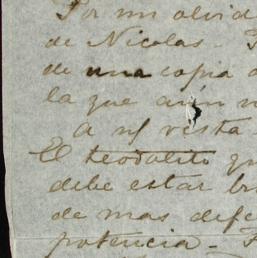 Por mi olvid
de Nicolas - F
de una copia d
la que aún n
A mi vista -
El teodolito qu
debe estar br
de mas defe
potencia - F